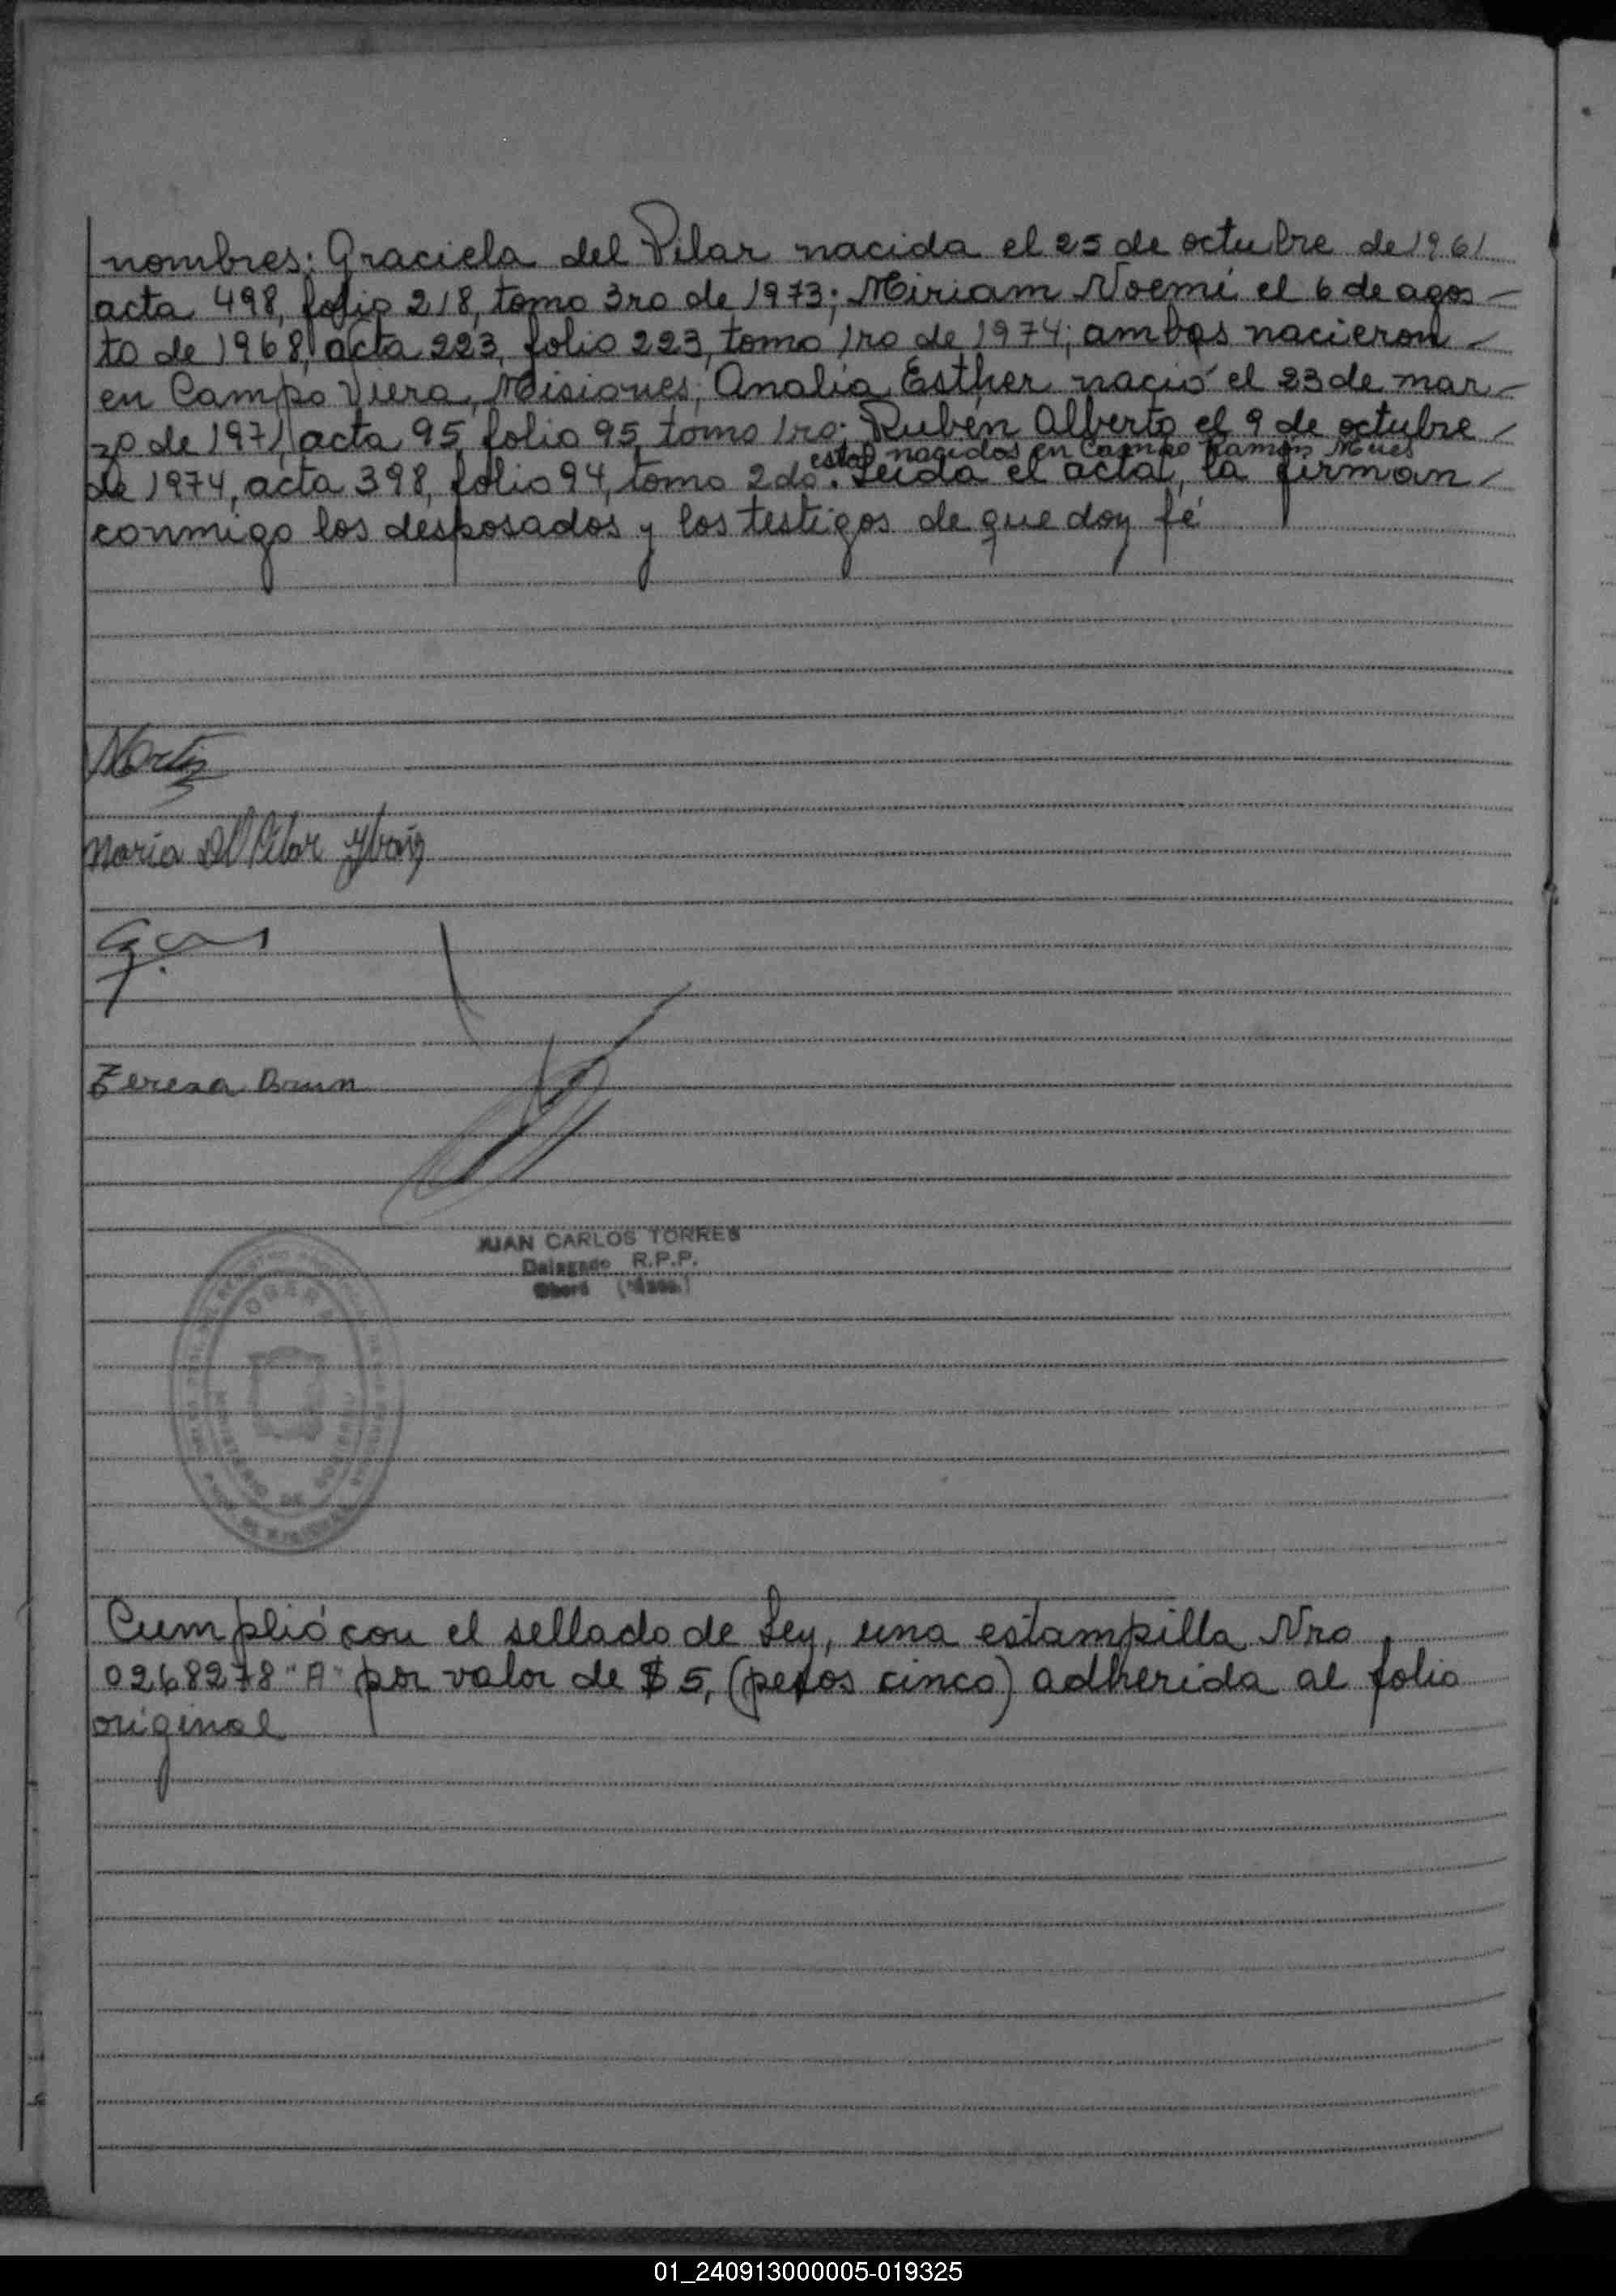 nombres: Graciela del Pilar nacida el 25 de octubre de 1961
acta 498, folio 218, tomo 3ro de 1973; Miriam Noemí el 6 de agos-
to de 1968, acta 223, folio 223, tomo 1ro de 1974; ambas nacieron
en Campo Viera, Misiones; Analía Esther nació el 23 de mar-
zo de 1971, acta 95, folio 95, tomo 1ro; Rubén Alberto el 9 de octubre
nacidos en Campo Ramón Mnes
de 1974, acta 398, folio 94, tomo 2do. Leída el acta, la firman
conmigo los desposados y los testigos de que doy fé
María Del Pilar
Teresa Brun
JUAN CARLOS TORRES
Delegado R.P.P.
Oberá
OBERA
MINISTERIO DE GOBIERNO
Cumplió con el sellado de Ley, una estampilla Nro
0268278 "A" por valor de $ 5, (pesos cinco) adherida al folio
original
01_240913000005-019325